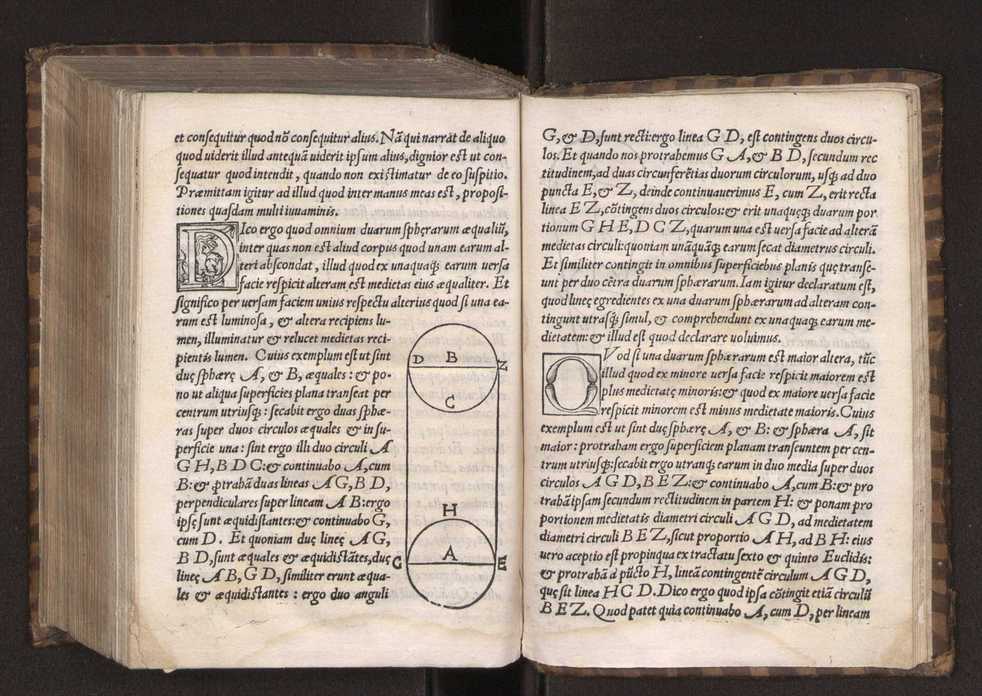 et consequitur quod nō consequitur alius. Nā qui narrat de aliquo
quod uiderit illud antequā uiderit ipsum alius, dignior est ut con-
sequatur quod intendit, quando non existimatur de eo suspitio.
Præmittam igitur ad illud quod inter manus meas est, proposi-
tiones quasdam multi iuuaminis.
DIco ergo quod omnium duarum sphęrarum æqualiū,
inter quas non est aliud corpus quod unam earum al-
teri abscondat, illud quod ex unaquaq; earum uersa
facie respicit alteram est medietas eius æqualiter. Et
significo per uersam faciem unius respectu alterius quod si una ea-
rum est luminosa, & altera recipiens lu-
men, illuminatur & relucet medietas reci-
pientis lumen. Cuius exemplum est ut sint
duę sphærę A, & B, æquales: & po-
no ut aliqua superficies plana transeat per
centrum utriusq;: secabit ergo duas sphæ-
ras super duos circulos æquales & in su-
perficie una: sint ergo illi duo circuli A
G H, B D C: & continuabo A, cum
B: & ꝓtrabā duas lineas A G, B D,
perpendiculares super lineam A B: ergo
ipsę sunt æquidistantes: & continuabo G,
cum D. Et quoniam duę lineę A G,
B D, sunt æquales & æquidistātes, duę
lineę A B, G D, similiter erunt æqua-
les & æquidistantes: ergo duo anguli
D B Z
C
H
A
G E
G, & D, sunt recti: ergo linea G D, est contingens duos circu-
los. Et quando nos protrahemus G A, & B D, secundum rec
titudinem, ad duas circunferētias duorum circulorum, usq; ad duo
puncta E, & Z, deinde continuauerimus E, cum Z, erit recta
linea E Z, cōtingens duos circulos: & erit unaquęq; duarum por
tionum G H E, D C Z, quarum una est uersa facie ad alterā
medietas circuli: quoniam unāquāq; earum secat diametrus circuli.
Et similiter contingit in omnibus superficiebus planis quę transe-
unt per duo cētra duarum sphærarum. Iam igitur declaratum est,
quod lineę egredientes ex una duarum sphærarum ad alteram con-
tingunt utrasq; simul, & comprehendunt ex unaquaq; earum me-
dietatem: & illud est quod declarare uoluimus.
QVod si una duarum sphærarum est maior altera, tūc
illud quod ex minore uersa facie respicit maiorem est
plus medietatę minoris: & quod ex maiore uersa facie
respicit minorem est minus medietate maioris. Cuius
exemplum est ut sint duę sphærę A, & B: & sphæra A, sit
maior: protraham ergo superficiem planam transeuntem per cen-
trum utriusq;: secabit ergo utranq; earum in duo media super duos
circulos A G D, B E Z: & continuabo A, cum B: & pro
trabā ipsam secundum rectitudinem in partem H: & ponam pro
portionem medietatis diametri circuli A G D, ad medietatem
diametri circuli B E Z, sicut proportio A H, ad B H: eius
uero aceptio est propinqua ex tractatu sexto & quinto Euclidis:
& protrabā à pūcto H, lineā contingentē circulum A G D,
quę sit linea H C D. Dico ergo quod ipsa cōtingit etiā circulū
B E Z. Quod patet quia continuabo A, cum D, per lineam